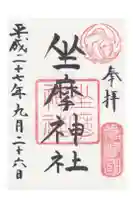 奉拝
坐摩神社
平成二十七年九月二十六日